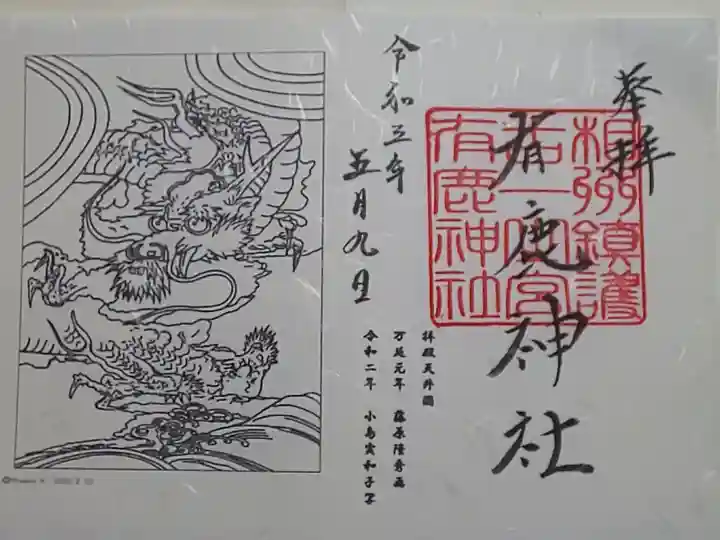 奉拝
有鹿神社
相州鎮護
有鹿神社
拝殿天井図
万延元年 藤原隆秀画
令和二年 小島実和子写
令和三年
五月九日